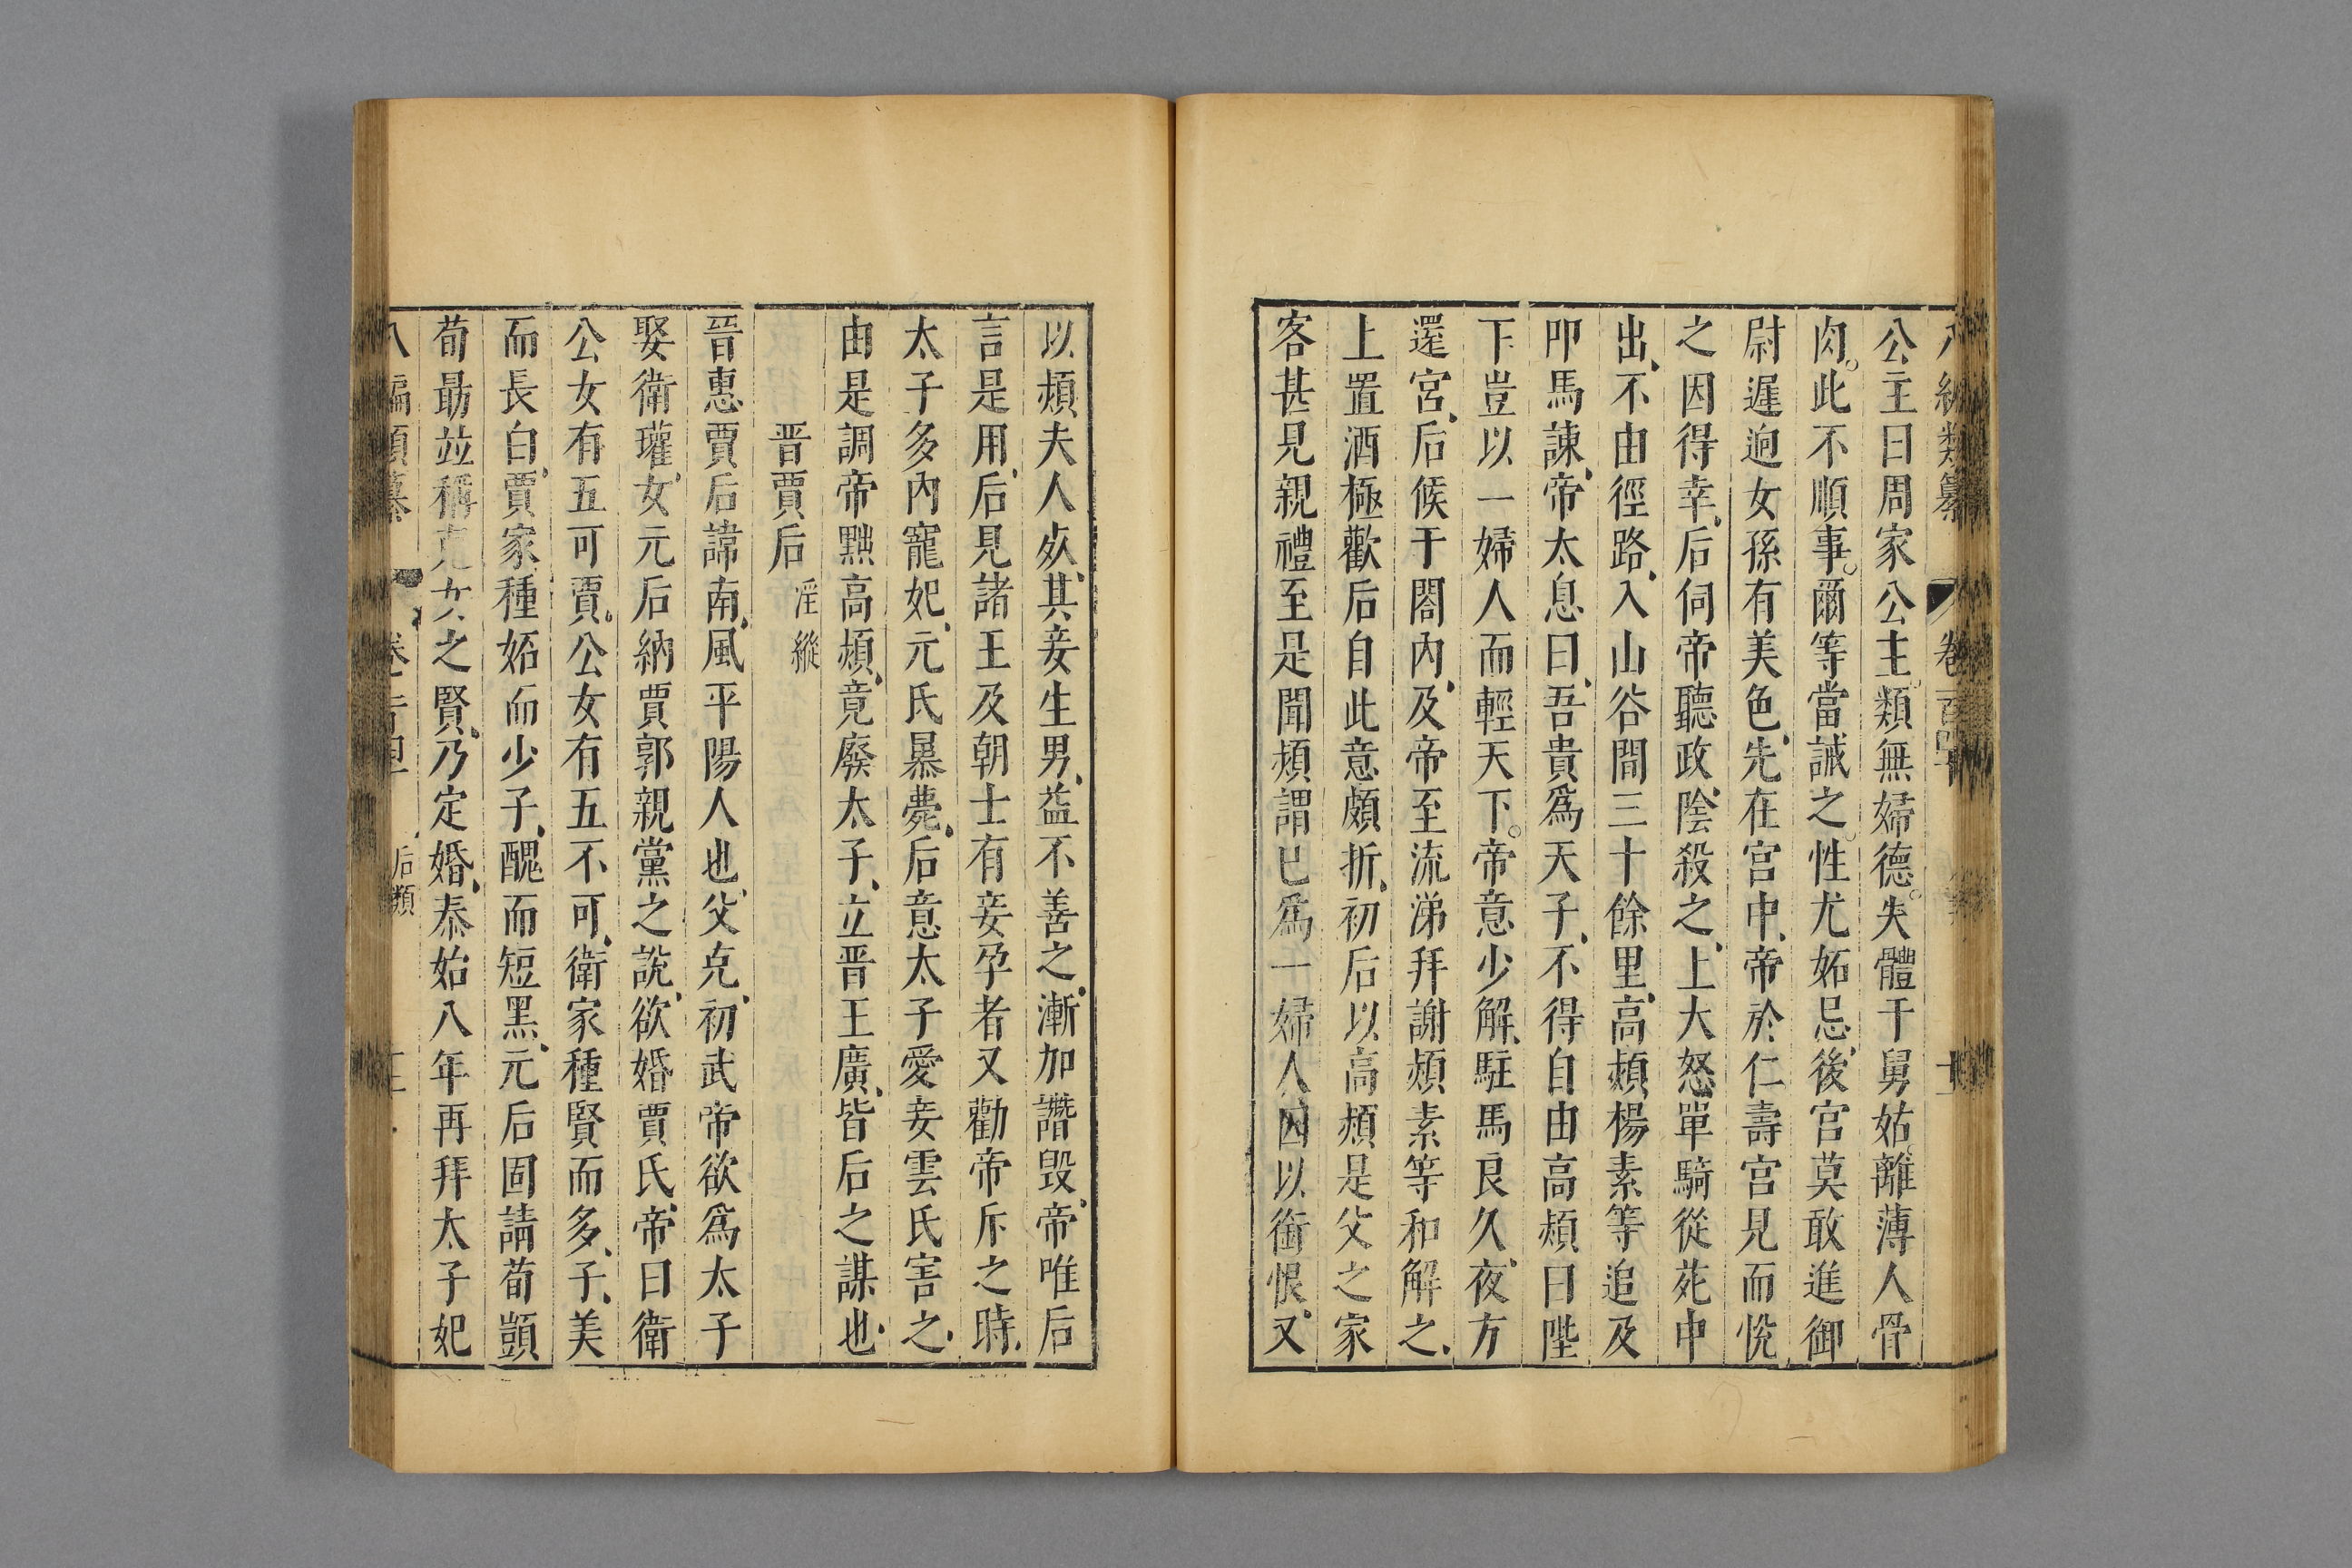 八編類纂 卷一百四 十二
公主曰周家公主類無婦德失體于舅姑離薄人骨
肉此不順事爾等當誡之性尤妬忌後宮莫敢進御
尉遲迥女孫有美色先在宮中帝於仁壽宮見而悅
之因得幸后伺帝聽政陰殺之上大怒單騎從苑中
出不由徑路入山谷間三十餘里高熲楊素等追及
叩馬諫帝太息曰吾貴爲天子不得自由高熲曰陛
下豈以一婦人而輕天下帝意少解駐馬良久夜方
還宮后候于閤內及帝至流涕拜謝熲素等和解之
上置酒極歡后自此意頗折初后以高熲是父之家
客甚見親禮至是聞熲謂已爲一婦人因以銜恨又
以熲夫人死其妾生男益不善之漸加譖毀帝唯后
言是用后見諸王及朝士有妾孕者又勸帝斥之時
太子多內寵妃元氏暴薨后意太子愛妾雲氏害之
由是調帝黜高熲竟廢太子立晉王廣皆后之謀也
晋賈后 淫縱
晉惠賈后諱南風平陽人也父充初武帝欲爲太子
娶衛瓘女元后納賈郭親黨之說欲婚賈氏帝曰衛
公女有五可賈公女有五不可衛家種賢而多子美
而長白賈家種妬而少子醜而短黑元后固請荀顗
荀勗竝稱充女之賢乃定婚泰始八年再拜太子妃
八編類纂 卷一百四 后類